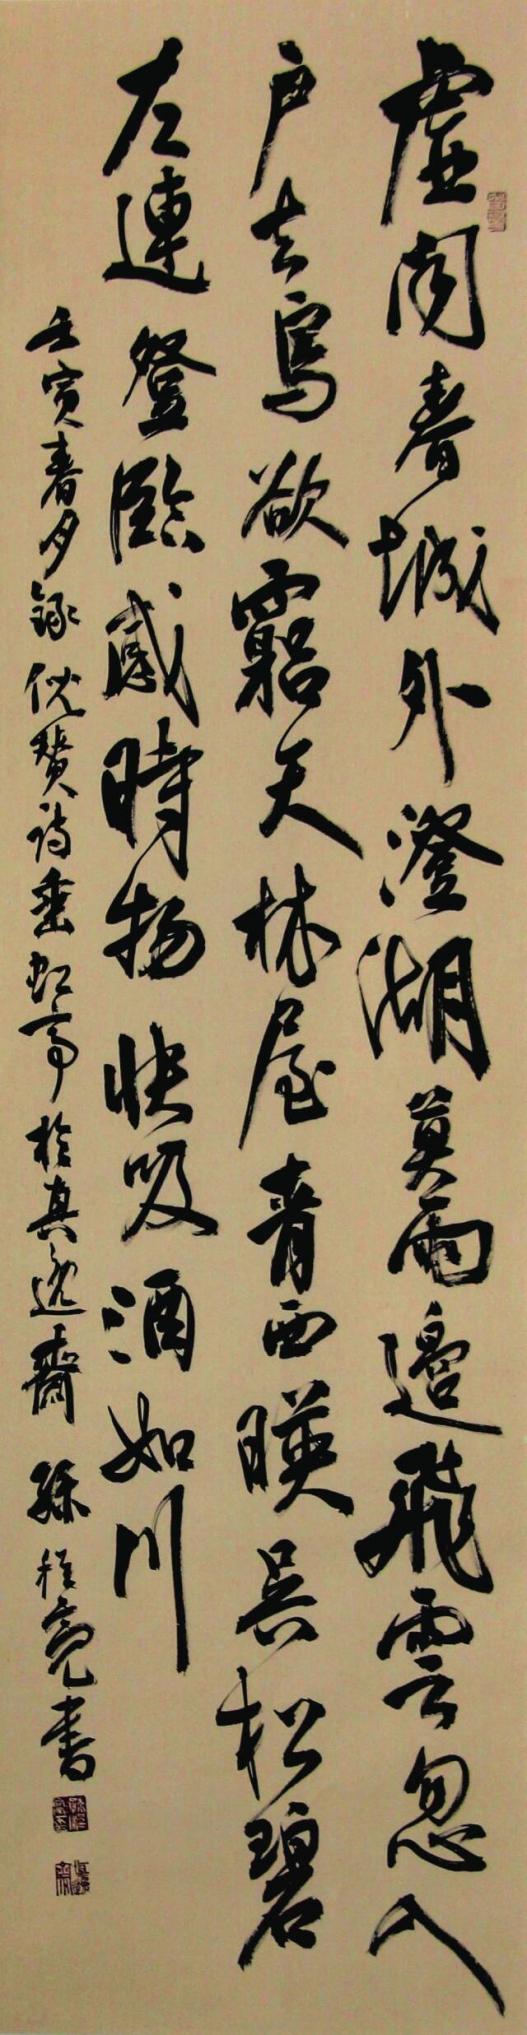 虛閣春城外澄湖莫雨邊飛雲忽入
户去鳥欲窮天林屋青西映吳松碧
左連登臨感時物快吸酒如川
壬寅春夕録倪瓚詩垂虹亭於真逸齋孫程亮書